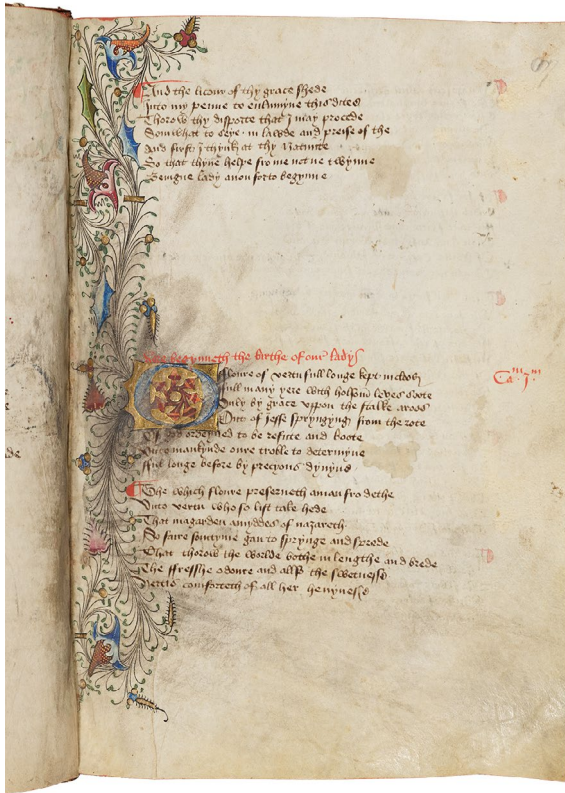 And the licour of thy grace shede
Into my penne to enlumyne this dites
Thorow thy disporte that I may procede
Somwhat to seye in lawde and preise of the
And first I thynk at thy Natiuite
So that thyne helpe fro me not ne twynne
Benigne lady anon forto begynne
begynneth the birthe of our lady
Ca.m j.m
floure of vertu full longe kept in cloos
full many yere with holsom leves soote
Only by grace vppon the stalke aroos
Out of Jesse spryngyng from the rote
Of god ordeyned to be resute and boote
Unto mankynde oure troble to determyne
full longe before by precyous
The which floure preserueth a man fro dethe
Unto vertu who so list take hede
That in a garden amyddes of nazareth
So faire somtyme gan to sprynge and sprede
That thorow the worlde bothe in lengthe and brede
The fresshe odoure and also the swetnesse
comforteth of all her hevynesse